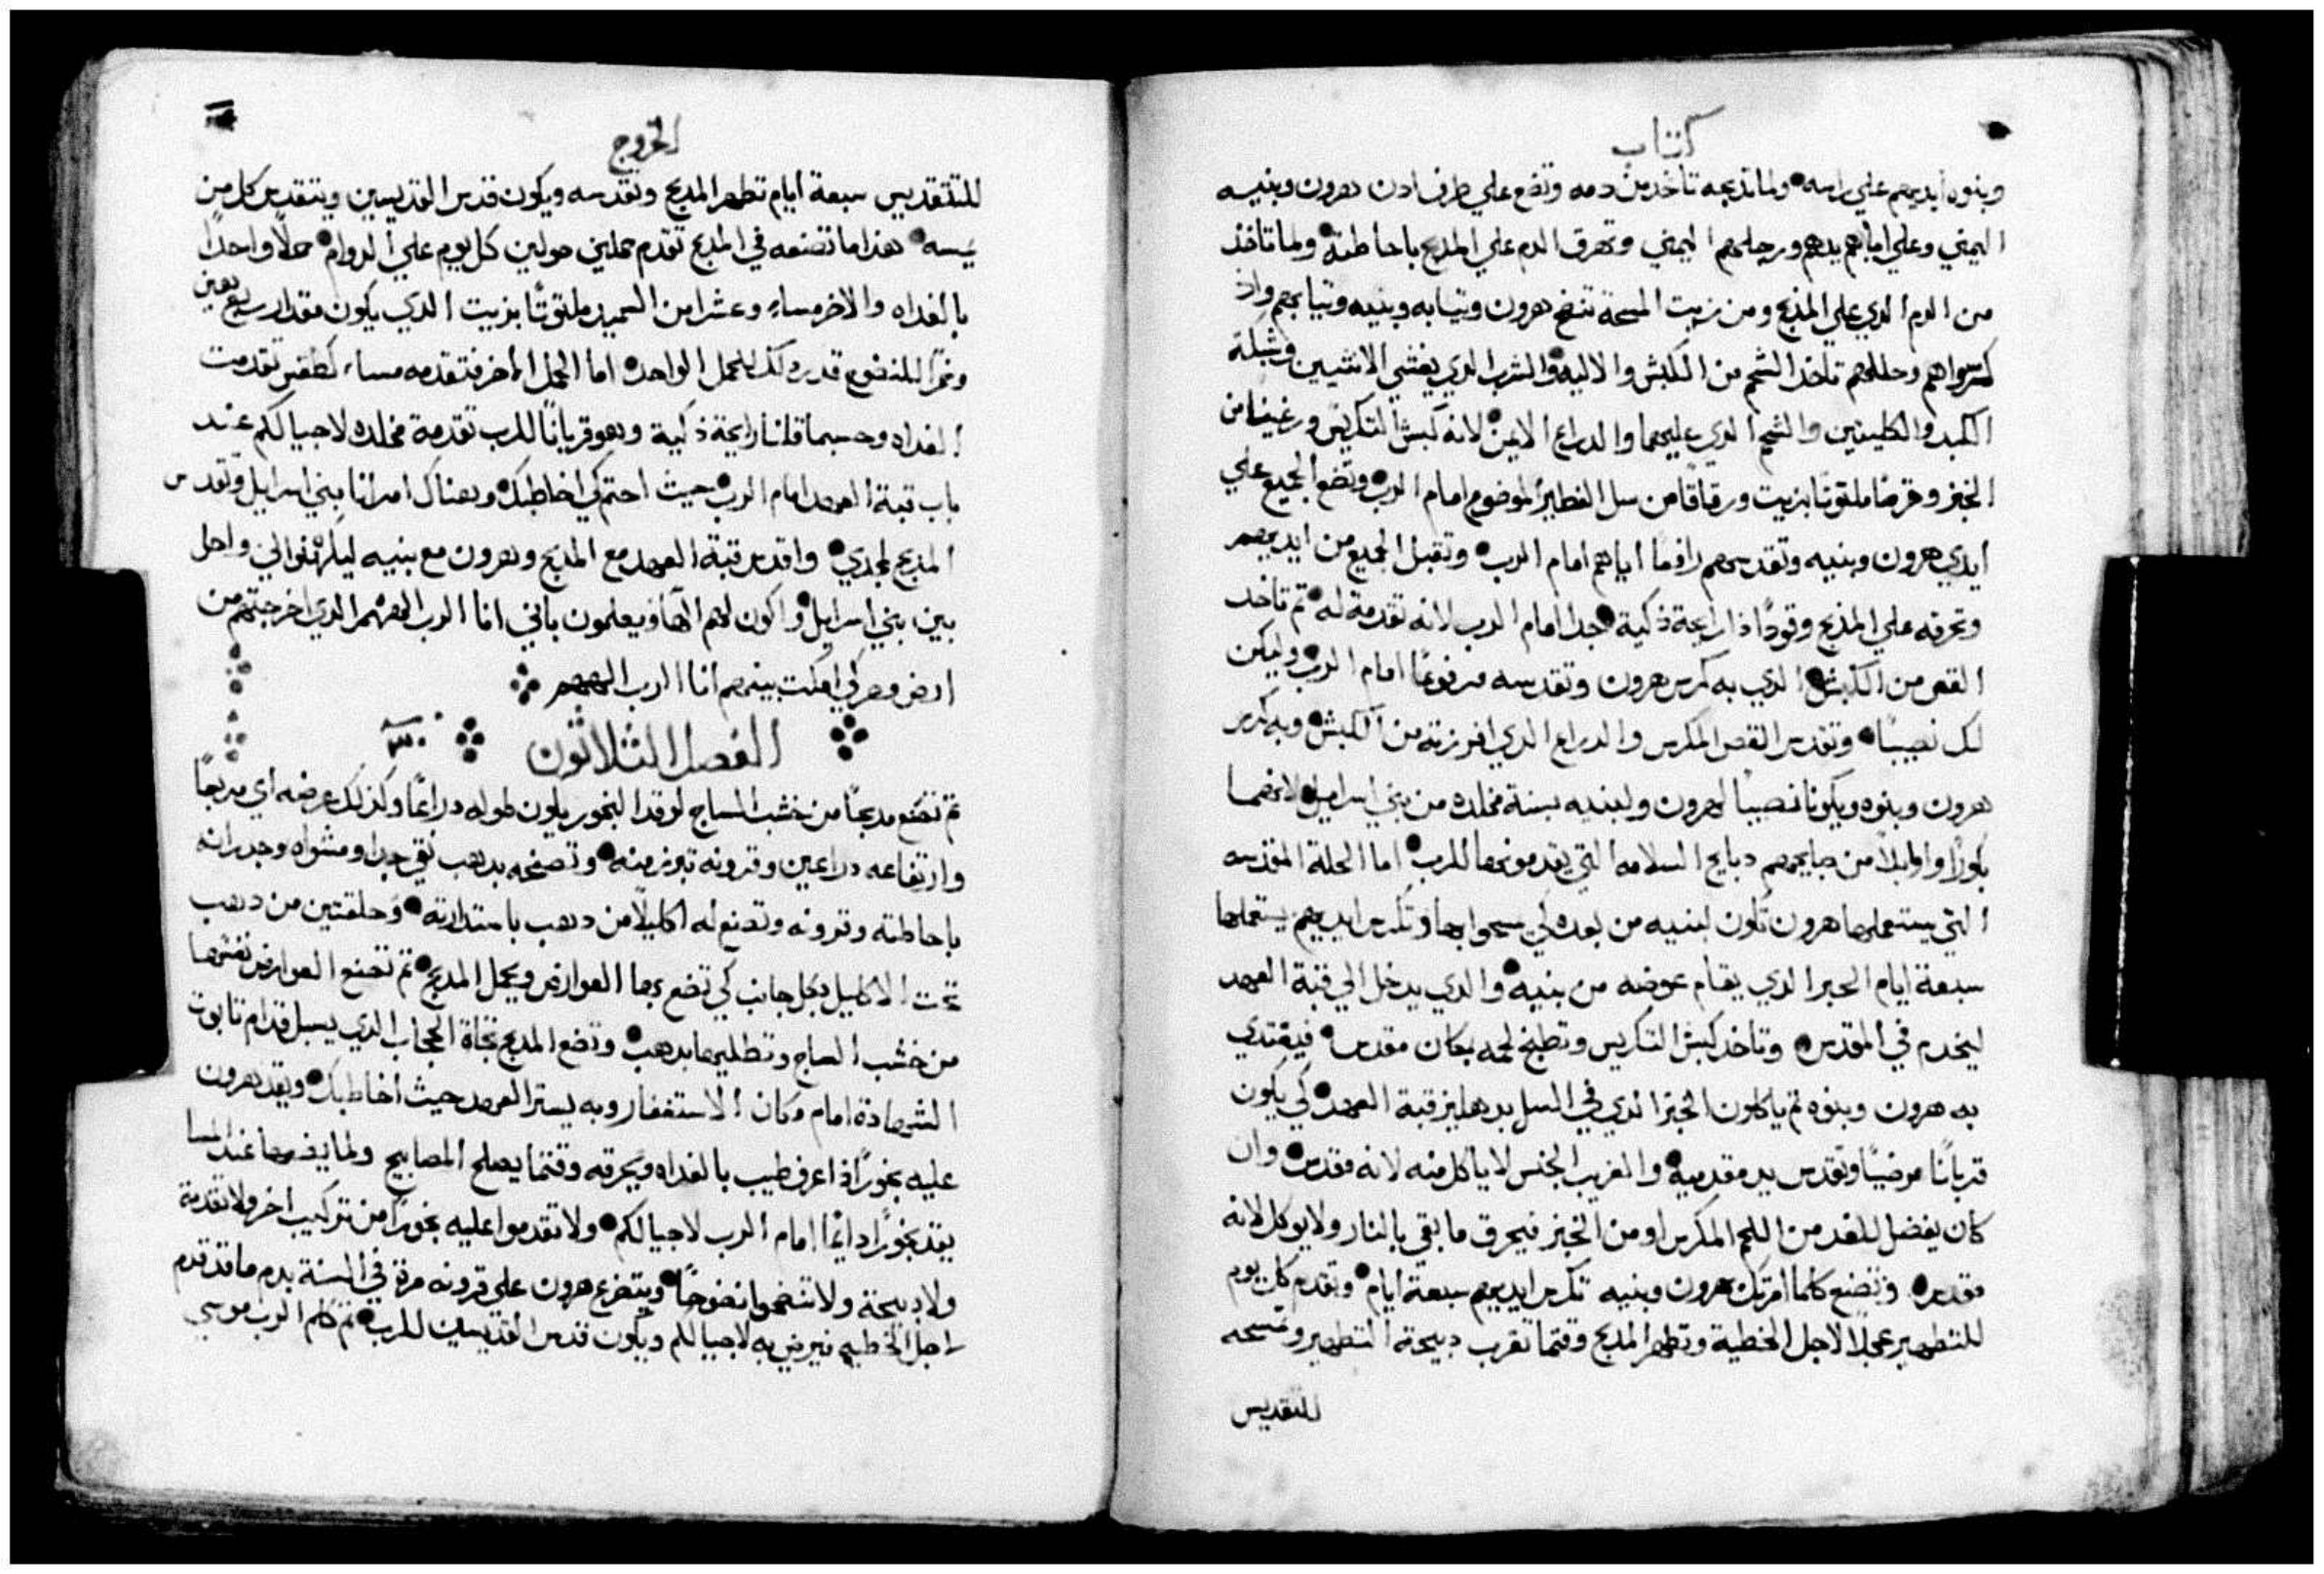 كتاب
وبنوه ايديهم علي راسه ولما تذبحه تاخد من دمه وتضع علي طرف ادن هرون وبنيه
اليمني وعلي اباهم يدهم ورجلهم اليمني وتهرق الدم علي المدبح باحاطته ولما تاخد
من الدم الدي علي المذبح ومن زيت المسحة تنضح هرون وتيابه وبنيه وتيابهم واذ
كرسواهم وحللهم تاخد الشحم من الكبش والاليه والثرب الدي يغشي الاتنيين وشبكة
الكبد والكليتين والشحم الدي عليهما والدراع الايمن لانه كبش التكريس ورغيفا من
الخبز وقرصا ملتوتا بزيت ورقاقا من سل الفطير الموضوع امام الرب وتضع الجميع علي
ايدي هرون وبنيه وتقدسهم رافعا اياهم امام الرب وتقبل الجميع من ايديهم
وتحرقه علي المذبح وقودا ذا رايحة ذكية جدا امام الرب لانه تقدمة له تم تاخد
القص من الكبش الدي به كرس هرون وتقدسه مرفوعا امام الرب وليكن
لك نصيبا وتقدس القص المكرس والدراع الدي افرزته من الكبش وبه كرس
هرون وبنوه ويكونا نصيبا لهرون ولبنيه بسنة مخلده من بني اسراييل لانهما
بكورا واوايلا من دبايحهم دبايح السلامه التي يقدمونها للرب اما الحلة المقدسه
التي يستعملها هرون تكون لبنيه من بعده لكي يمسحوا بها وتكرس ايديهم يستعملها
سبعة ايام الحبر الدي يقام عوضه من بنيه والدي يدخل الي قبة العهد
ليخدم في المقدس وتاخد كبش التكريس وتطبخ لحمه بمكان مقدس فيغتدي
به هرون وبنوه تم ياكلون الخبز الدي في السل بدهليز قبة العهد كي يكون
قربانا مرضيا وتقدس يد مقدميه والغريب الجنس لا ياكل منه لانه مقدس وان
كان يفضل للغد من اللحم المكرس او من الخبز فيحرق ما بقي بالنار ولا يوكل لانه
مقدس وتصنع كلما امرتك بهرون وبنيه تكرس ايديهم سبعة ايام وتقدم كل يوم
للتطهير عجلا لاجل الخطية وتطهر المدبح وقتما تقرب دبيحة التطهير وتمسحه
للتقديس
الخروج
للتقديس سبعة ايام تطهر المدبح وتقدسه ويكون قدس القديسين ويتقدس كل من
يمسه هذا ما تصنعه في المدبح تقدم حملين حولين كل يوم علي الدوام حملا واحدا
بالغداه والاخر مساء وعشرا من السميد ملتوتا بزيت الدي يكون مقدار ربع هين
وخمرا للنضوح قدر دلك للحمل الواحد اما الحمل الاخر فتقدمه مساء كطقس تقدمت
الغداه وحسبما قلنا رايحة ذكية وهو قربانا للرب تقدمة مخلده لاجيالكم عند
باب قبة العهد امام الرب حيث احتم كي اخاطبك وهناك امر انا بني اسراييل وتقدس
المدبح لمجدي واقدس قبة العهد مع المدبح وهرون مع بنيه ليكهنوا لي واحل
بين بني اسراييل واكون لهم الها ويعلمون باني انا الرب الاههم الدي اخرجتهم من
ارض مصر لكي امكت بينهم انا الرب الاههم
الفصل الثلاثون
تم تصنع مدبحا من خشب الساج لوقد البخور يكون طوله دراعا وكذلك عرضه اي مربعا
وارتفاعه دراعين وقرونه تبرز منه وتصفحه بدهب نقي جدا ومشواه وجدرانه
باحاطته وقرونه وتصنع له اكليلا من دهب باستدارته وحلقتين من دهب
تحت الاكليل بكل جانب كي تضع بها العوارض ويحمل المدبح تم تصنع العوارض نفسها
من خشب الساج وتطليها بدهب وتضع المدبح تجاة الحجاب الدي يسبل قدام تابوت
الشهادة امام مكان الاستغفار وبه يستر العهد حيث اخاطبك ويقد هرون
عليه بخورا ذا عرف طيب بالغداه ويحرقه وقتما يصلح المصابيح ولما يضعها عند المسا
يقد بخورا دايما امام الرب لاجيالكم ولا تقدموا عليه بخورا من تركيب اخر ولا تقدمة
ولا دبيحة ولا تنضحوا نضوحا ويتضرع هرون علي قرونه مرة في السنة بدم ما قد قدم
لاجل الخطيه فيرضي به لاجيالكم ويكون قدس القديسين للرب تم كلم الرب موسي